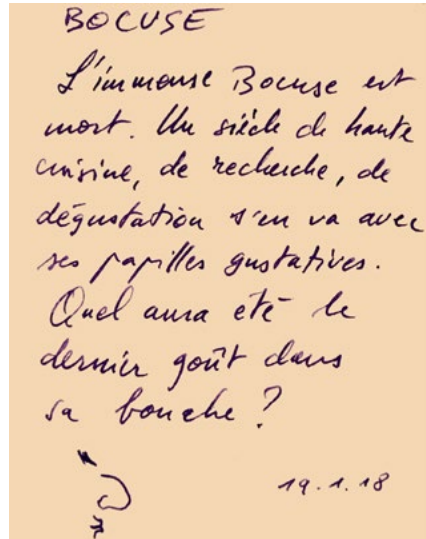 BOCUSE
L'immense Bocuse est
mort. Un siècle de haute
cuisine, de recherche, de
dégustation s'en va avec
ses papilles gustatives.
Quel aura été le
dernier goût dans
sa bouche ?
19.1.18